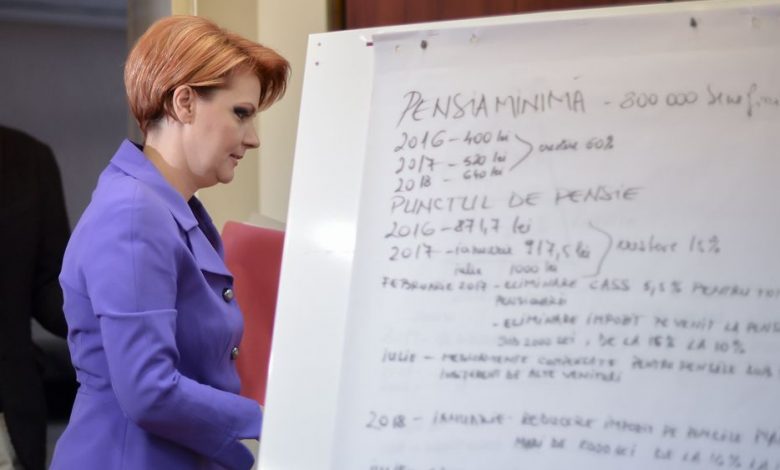 PENSIA MINIMĂ - 800 000 benefici
2016 - 400 lei
2017 - 520 lei
2018 - 640 lei
creștere 60%
PUNCTUL DE PENSIE
2016 - 871,7 lei
2017 - ianuarie 917,5 lei
iulie 1000 lei
creștere 15%
FEBRUARIE 2017 - ELIMINARE CASS 5,5% PENTRU TOȚI
PENSIONARII
- ELIMINARE IMPOZIT PE VENIT LA PENSI
SUB 2000 LEI, DE LA 16% LA 10%
IULIE - MEDICAMENTE COMPENSATE PENTRU PENSIILE SUB
INDIFERENT DE ALTE VENITURI
2018 - IANUARIE - REDUCERE IMPOZIT PE PENSIILE MAI
MARI DE 2000 LEI DE LA 16% LA